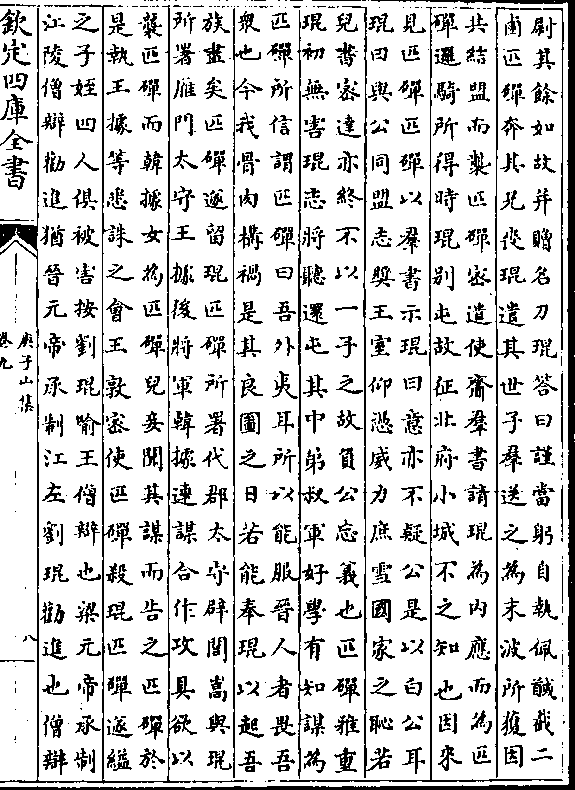 尉其餘如故并贈名刀琨答曰謹當躬自執佩馘截二
匹磾奔其兄從琨遣其世子羣送之為末波所獲因
共結盟而襲匹磾密遣使齎羣書請琨為内應而為匹
磾邏騎所得時琨别屯故征北府小城不之知也因來
見匹磾匹磾以羣書示琨曰意亦不疑公是以白公耳
琨曰與公同盟志奬王室仰憑威力庶雪國家之恥若
兒書密達亦終不以一子之故負公忘義也匹磾雅重
琨初無害琨志將聽還屯其中弟叔軍好學有知謀為
匹磾所信謂匹磾曰吾外夷耳所以能服晉人者畏吾
衆也今我骨肉構禍是其良圖之日若能奉琨以起吾
族盡矣匹磾遂留琨匹磾所署代郡太守辟閭嵩與琨
所署雁門太守王據後將軍韓據連謀合作攻具欲以
襲匹磾而韓據女為匹磾兒妾聞其謀而告之匹磾於
是執王據等悉誅之會王敦密使匹磾殺琨匹磾遂縊
之子姪四人俱被害按劉琨喻王僧辯也梁元帝承制
江陵僧辯勸進猶晉元帝承制江左劉琨勸進也僧辯
欽定四庫全書
庾子山集
卷九
八